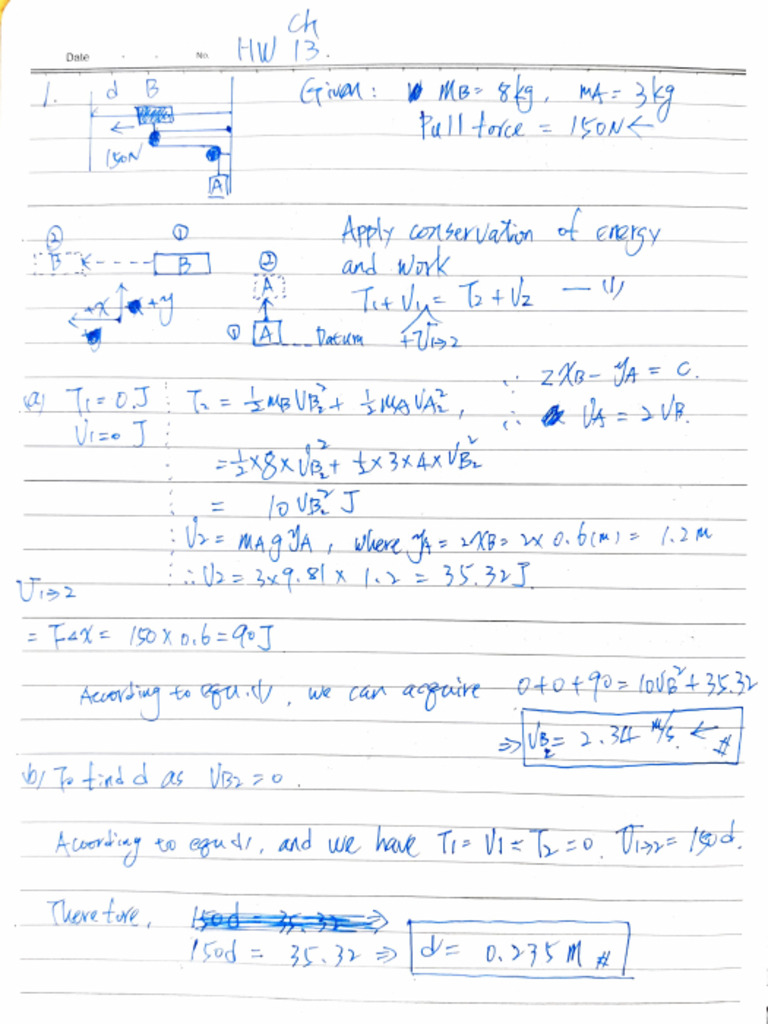 Date . . No.
HW Ch 13.
1. d B Given: mB = 8kg, mA = 3kg
Pull force = 150N ←
150N
A
② ① Apply conservation of energy
B B ② and work
A T1 + V1 = T2 + V2 — (1)
+x +y ① A Datum +U1→2
∵ 2XB - yA = C.
(a) T1 = 0 J T2 = 1/2 mB VB2² + 1/2 mA VA2², ∴ VA = 2VB.
V1 = 0 J
= 1/2 × 8 × VB2² + 1/2 × 3 × 4 × VB2²
= 10 VB2² J
V2 = mA g yA, where yA = 2XB = 2 × 0.6 (m) = 1.2 m
∴ V2 = 3 × 9.81 × 1.2 = 35.32 J
U1→2
= FΔX = 150 × 0.6 = 90 J
According to equ.(1), we can acquire 0 + 0 + 90 = 10VB² + 35.32
⇒ VB2 = 2.34 m/s ← #
(b) To find d as VB2 = 0.
According to equ (1), and we have T1 = V1 = T2 = 0. U1→2 = 150d.
Therefore, 150d = 35.32 ⇒
150d = 35.32 ⇒ d = 0.235 M #